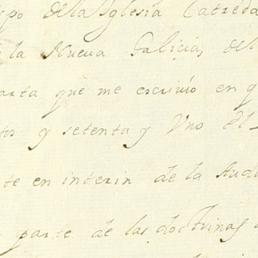 po de la Iglesia Catreda
la Nueva Galicia, del
arta que me escrivio en q
y setenta y Vno el
te en interin de la Aud
parte de las doctrinas